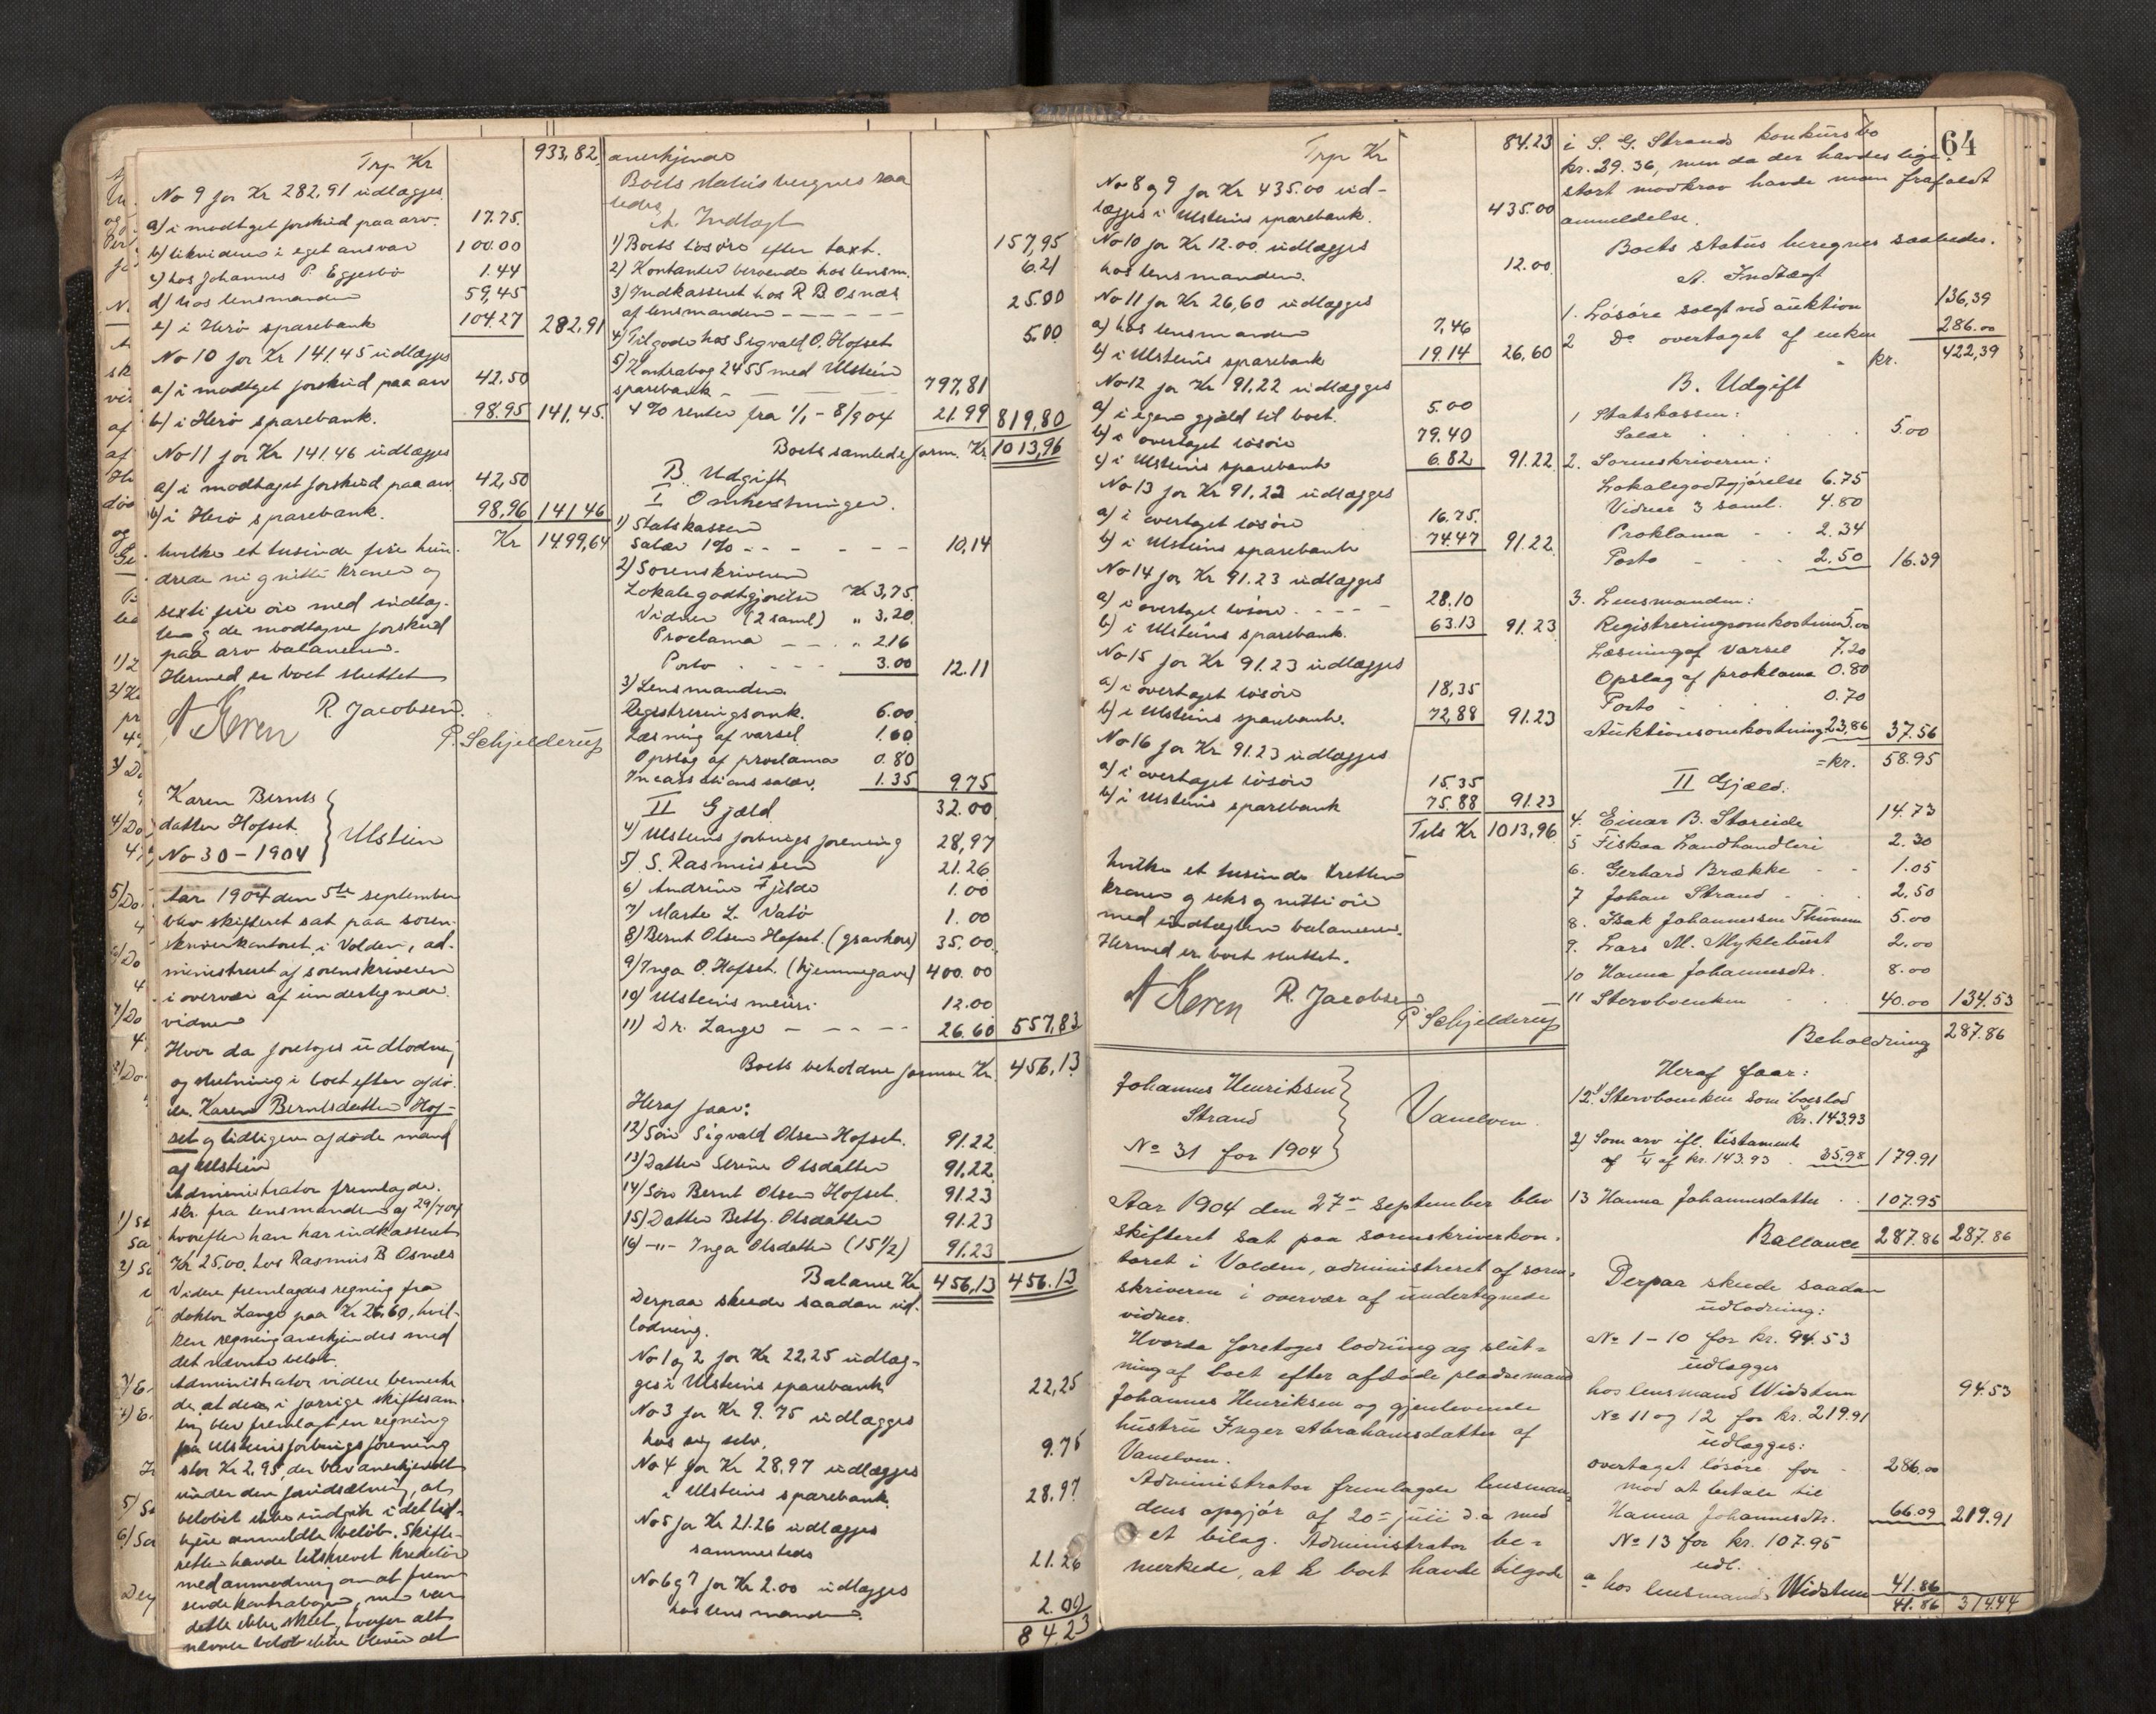 Trp Kr 933,82
No 9 for Kr 282,91 udlægges
a) i modtaget forskud paa arv. 17.75.
b) likviderer i eget ansvar 100.00
c) hos Johannes P. Eggesbö 1.44
d) hos lensmanden 59,45
e) i Herö sparebank 104.27 282,91
No 10 for Kr 141,45 udlægges
a) i modtaget forskud paa arv 42.50
b) i Herö sparebank. 98.95 141,45.
No 11 for Kr 141.46 udlægges
a) i modtaget forskud paa arv 42,50
b) i Herö sparebank. 98,96 141 46
Kr 1499,64
hvilke et tusinde fire hun-
drede ni og nitti kroner og
sexti fire öre med indtæg-
ten og de modtagne forskud
paa arv balancerer.
Hermed er boet sluttet
R. Jacobsen.
P. Schjelderup
Karen Bernts
datter Hofset
No 30 - 1904
Ulstein
Aar 1904 den 5te september
blev skifteret sat paa soren-
skriverkontoret i Volden, ad-
ministreret af sorenskriveren
i overvær af undertegnede
vidner
Hvor da foretoges udlodning
og slutning i boet efter afdö-
de Karen Berntsdatter Hof-
set og tidligere afdöde mand
af Ulstein
Administrator fremlagde
skr. fra lensmanden af 29/7 04
hvorefter han har indkasseret
Kr 25.00 hos Rasmus B Osnes
Videre fremlagdes regning fra
doktor Lange paa Kr 26,60, hvil-
ken regning anerkjendes med
det nævnte belöb.
Administrator videre bemerke
de, at der i forrige skiftesam
ling blev fremlagt en regning
fra Ulsteins forbrugsforening
stor Kr 2,95, der blev anerkjendt
under den forudsætning, at
belöbet ikke indgik i det tid-
ligere anmeldte belöb. Skifte-
retten havde tilskrevet kreditor
med anmodning om at frem
sende kontrabogen, men var
dette ikke skeet, hvorfor alt
nævnte belöb ikke blev at
anerkjende
Boets status beregnes saa
ledes
A Indtægt
1) Boets lösöre efter taxt. 157,95
2) Kontanter beroende hos lensm. 6.21
3) Indkasseret hos R. B. Osnæs
af lensmanden 25.00
4) Tilgode hos Sigvald O. Hofset 5.00
5) Kontrabog 2455 med Ulstein
sparebank 797,81
4% renter fra 1/1 - 8/9 04 21.99 819,80
Boets samlede form. Kr 1013,96
B. Udgift
I Omkostninger.
1) Statskassen
Salær 1% 10,14
2) Sorenskriveren
Lokalegodtgjörelse Kr 3,75
Vidner (2 saml) " 3,20
Proclama " 2.16
Porto 3.00 12.11
3) Lensmanden
Registreringsomk. 6.00
Læsning af varsel 1.60
Opslag af proclama 0.80
Incassationssalær. 1.35 9.75
32.00
II Gjæld
4) Ulsteins forbrugsforening 28,97
5) S. Rasmussen 21.26
6) Andrine Fjelde 1.00
7) Marte L. Vatö 1.00
8) Bernt Olsen Hofset. (gravköb) 35.00
9) Inga O. Hofset. (hjemmegave) 400.00
10) Ulsteins meieri 12.00
11) Dr. Lange 26.60 557,83
Boets beholdne formue Kr. 456,13
Heraf faar:
12) Sön Sigvald Olsen Hofset. 91.22
13) Datter Serine Olsdatter 91,22
14) Sön Bernt Olsen Hofset. 91.23
15) Datter Betty Olsdatter 91.23
16) -"- Inga Olsdatter (15 1/2) 91.23
Balance Kr 456,13 456.13
Derpaa skeede saadan ud-
lodning.
No 1 og 2 for Kr 22,25 udlæg-
ges i Ulsteins sparebank 22,25
No 3 for Kr 9.75 udlægges
hos sig selv. 9.75
No 4 for Kr 28,97 udlægges
i Ulsteins sparebank. 28.97
No 5 for Kr 21.26 udlægges
sammesteds 21.26
No 6 og 7 for Kr 2.00 udlægges
hos lensmanden. 2.00
84.23
64
Trp Kr 84.23
No 8 og 9 for Kr 435.00 ud-
lægges i Ulsteins sparebank. 435.00
No 10 for Kr 12.00 udlægges
hos lensmanden. 12.00
No 11 for Kr 26,60 udlægges
a) hos lensmanden 7,46
b) i Ulsteins sparebank 19.14 26,60
No 12 for Kr 91,22 udlægges
a) i egen gjæld til boet. 5.00
b) i overtaget lösöre 79.40
c) i Ulsteins sparebank 6.82 91.22
No 13 for Kr 91,22 udlægges
a) i overtaget lösöre 16.75.
b) i Ulsteins sparebank 74.47 91.22
No 14 for Kr 91.23 udlægges
a) i overtaget lösöre 28.10
b) i Ulsteins sparebank. 63.13 91.23
No 15 for Kr 91.23 udlægges
a) i overtaget lösöre 18,35
b) i Ulsteins sparebank. 72,88 91.23
No 16 for Kr 91.23 udlægges
a) i overtaget lösöre 15.35
b) i Ulsteins sparebank 75.88 91.23
Tils Kr 1013,96
hvilke et tusinde tretten
kroner og seks og nitti öre
med indtægten balancerer.
Hermed er boet sluttet.
R. Jacobsen
P Schjelderup
Johannes Henriksen
Strand
No 31 for 1904
Vanelven
Aar 1904 den 27de september blev
skifteret sat paa sorenskriverkon-
toret i Volden, administreret af soren-
skriveren i overvær af undertegnede
vidner.
Hvorda foretoges lodning og slut-
ning af boet efter afdöde pladsemand
Johannes Henriksen og gjenlevende
hustru Inger Abrahamsdatter af
Vanelven.
Administrator fremlagde lensman-
dens opgjör af 20de juli d.a med
et bilag. Administrator be-
merkede, at boet havde tilgode
i S. G. Strands konkursbo
kr. 29.36, men da der havdes lige
stort modkrav havde man frafaldt
anmeldelse.
Boets status beregnes saaledes.
A. Indtægt
1. Lösöre solgt ved auktion 136,39
2 Do overtaget af enken 286.00
kr. 422,39
B. Udgift
1 Statskassen:
Salær 5.00
2. Sorenskriveren:
Lokalegodtgjörelse 6.75
Vidner 3 saml. 4.80
Proklama 2.34
Porto 2.50 16.39
3. Lensmanden:
Registreringsomkostninger 5.00
Læsning af varsel 7.20
Opslag af proklama 0.80
Porto 0.70
Auktionsomkostning 23,86 37.56
= kr. 58.95
II Gjæld.
4. Einar B. Storeide 14.73
5 Fiskaa Landhandleri 2.30
6. Gerhard Brække 1.05
7 Johan Strand 2.50
8. Isak Johannessen Thunem 5.00
9. Lars M. Myklebust 2.00
10 Hanna Johannesdtr. 8.00
11 Stervboenken 40.00 134.53
Beholdning 287.86
Heraf faar:
12. 1) Stervboenken som boeslod
Kr. 143.93
2) Som arv ifl. testamente
af 1/4 af kr. 143.93 35.98 179.91
13 Hanna Johannesdatter 107.95
Ballance 287.86 287.86
Derpaa skeede saadan
udlodning:
No 1-10 for kr. 94.53
udlægges
hos lensmand Widsteen 94.53
No 11 og 12 for kr. 219.91
udlægges:
overtaget lösöre for 286.00
mod at betale til
Hanna Johannesdtr. 66.09 219.91
No 13 for kr. 107.95
udl.
a hos lensmand Widsteen 41.86
41.86 314.44